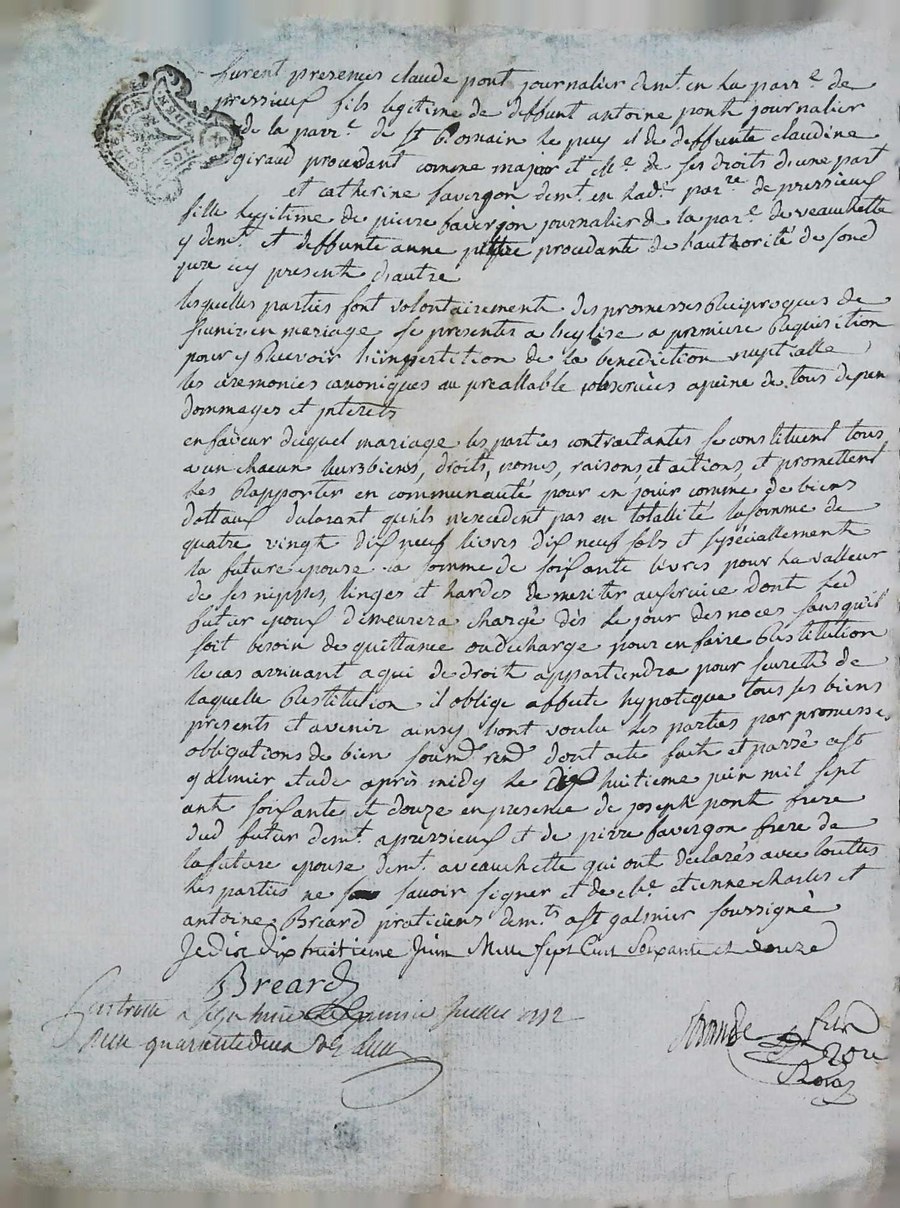 furent presences claude pont journalier demt. en la parr.e de
pressieux fils legitime de deffunt antoine ponth journalier
de la parr.e de St Romain le puy et de deffunte claudine
giraud procedant comme major et Me. de ses droits d'une part
et catherine favergon demt. en lad.e par.re de pressieux
fille legitime de pierre favergon journalier de la par.e de veauchette
y demt. et deffunte anne procedante de l'authorité de sond
pere icy present d'autre
lesquelles parties font volontairement des promesses Reciproques de
s'unir en mariage se presenter a l'eglise a premiere Requisition
pour y Recevoir l'impertition de la benediction nuptialle
les ceremonies canoniques au preallable observées apeine de tous depen
dommages et interets
en faveur duquel mariage les parties contraitantes se constituent tous
a un chacun leurs biens, droits, noms, raisons, et actions, et promettent
les Rapporter en communauté pour en jouir comme de biens
dottaux declarant qu'ils n'excedent pas en totallité la somme de
quatre vingt dix neuf livres dix neuf sols et specialement
la future epouse la somme de soixante livres pour la valleur
de ses nippes, linges et hardes de meriter au service dont led
futur epoux demeurera chargé dès le jour des noces sans qu'il
soit besoin de quittance ou decharge pour en faire Restitution
le cas arrivant a qui de droit appartiendra pour sureté de
laquelle Restitution il oblige affecte hypoteque tous ses biens
presents et avenir ainsy l'ont voulu les parties par promesses
obligations de bien soumd. rend. dont acte faith et passé a st
galmier etude après midy le dix huitieme juin mil sept
cent soixante et douze en presence de joseph ponth frere
dud futur demt. a pressieux et de pierre favergon frere de
la future epouse demt. a veauchette qui ont declarés avec touttes
les parties ne savoir signer et de Me. etienne charles et
antoine Bréard praticiens demts. a st galmier soussigné
Je dix huitieme Juin Mille Sept Cent Soixante et douze
Breard